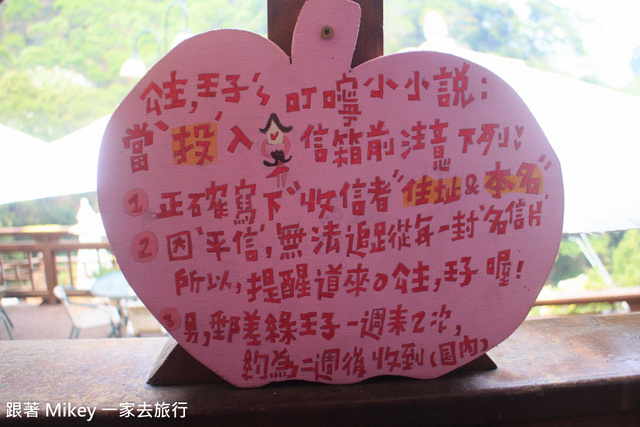 公主,王子ㄟ叮嚀小小說:
當'投'入 信箱前注意下列:
1 正確寫下"收信者"住址&本名"
2 因'平信',無法追蹤從每一封'名信片'
所以,提醒道來の公主,王子喔!
3 男,郵差綠王子一週來2次,
約為二週後收到(國內)
跟著 Mikey 一家去旅行